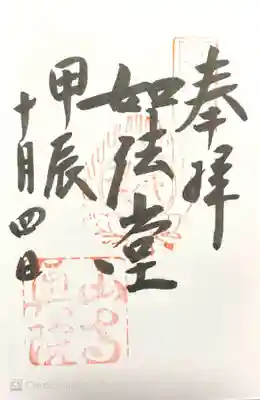 奉拝
如法堂
甲辰
十月四日